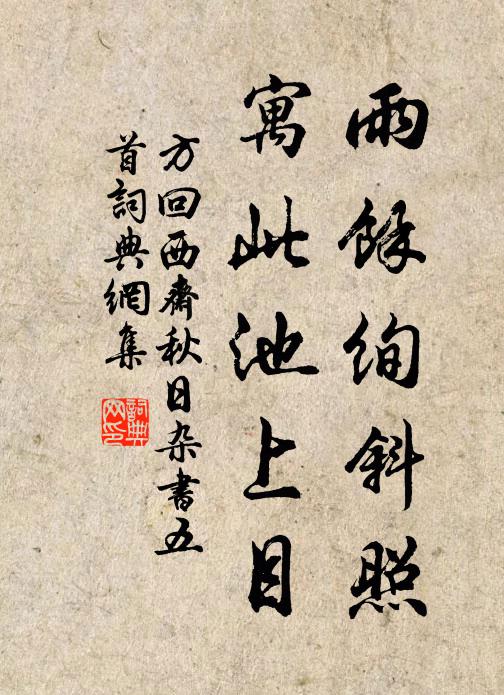 雨餘絢斜照
寓此池上目
方回西齋秋日杂書五
首詞典網集
詞典
网印